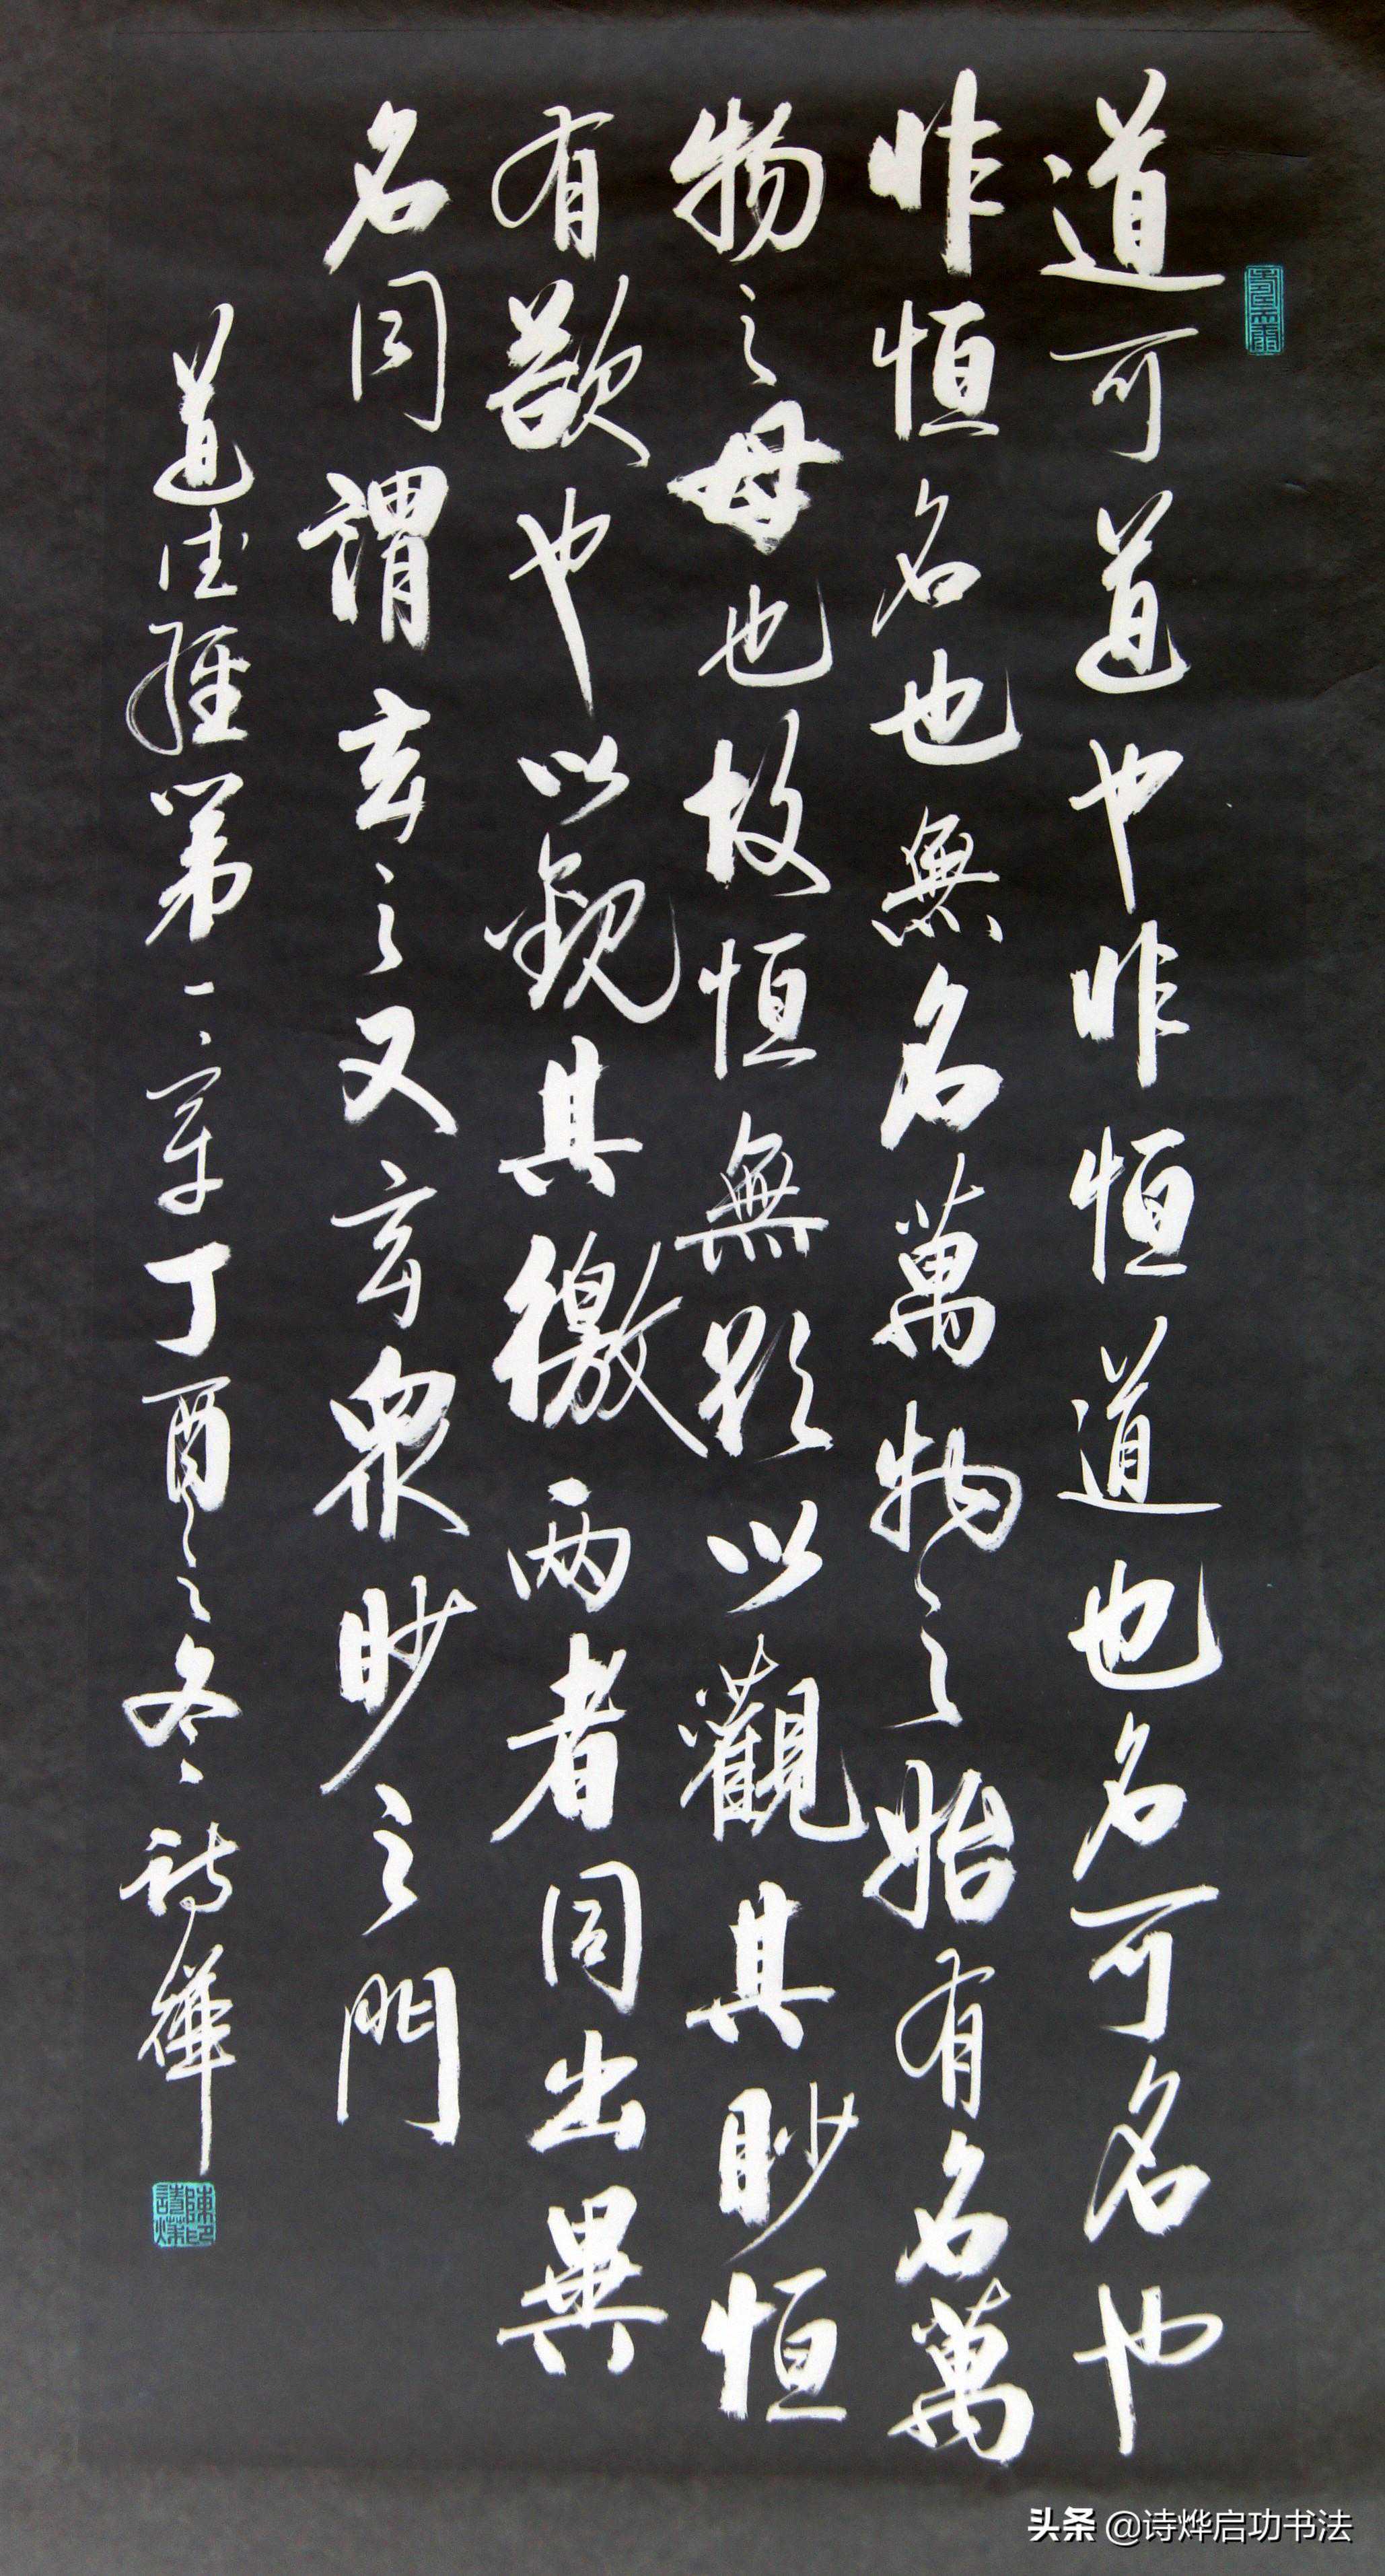 道可道也非恒道也名可名也
非恒名也無名萬物之始有名萬
物之母也故恒無欲以觀其眇恒
有欲也以觀其徼两者同出異
名同謂玄之又玄眾眇之門
道德經第一章丁酉之冬诗燁
陳印詩烨
头条 @诗烨启功书法